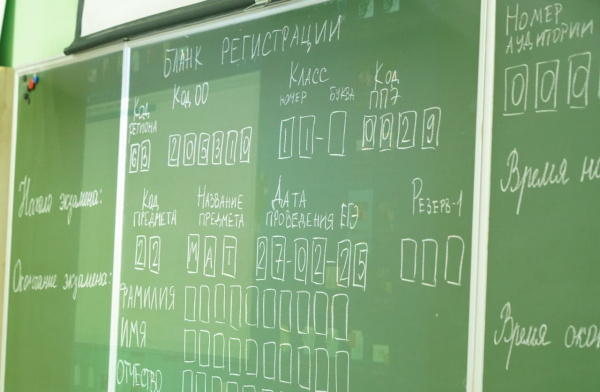 БЛАНК РЕГИСТРАЦИИ
Код региона
Код ОО
Класс
номер буква
Код ППЭ
63
205310
11-
0029
Код предмета
Название предмета
Дата проведения ЕГЭ
Резерв-1
22
МАТ
27-02-25
ФАМИЛИЯ
ИМЯ
ОТЧЕСТВО
Начало экзамена:
Окончание экзамена:
Номер аудитории
000
Время
Время